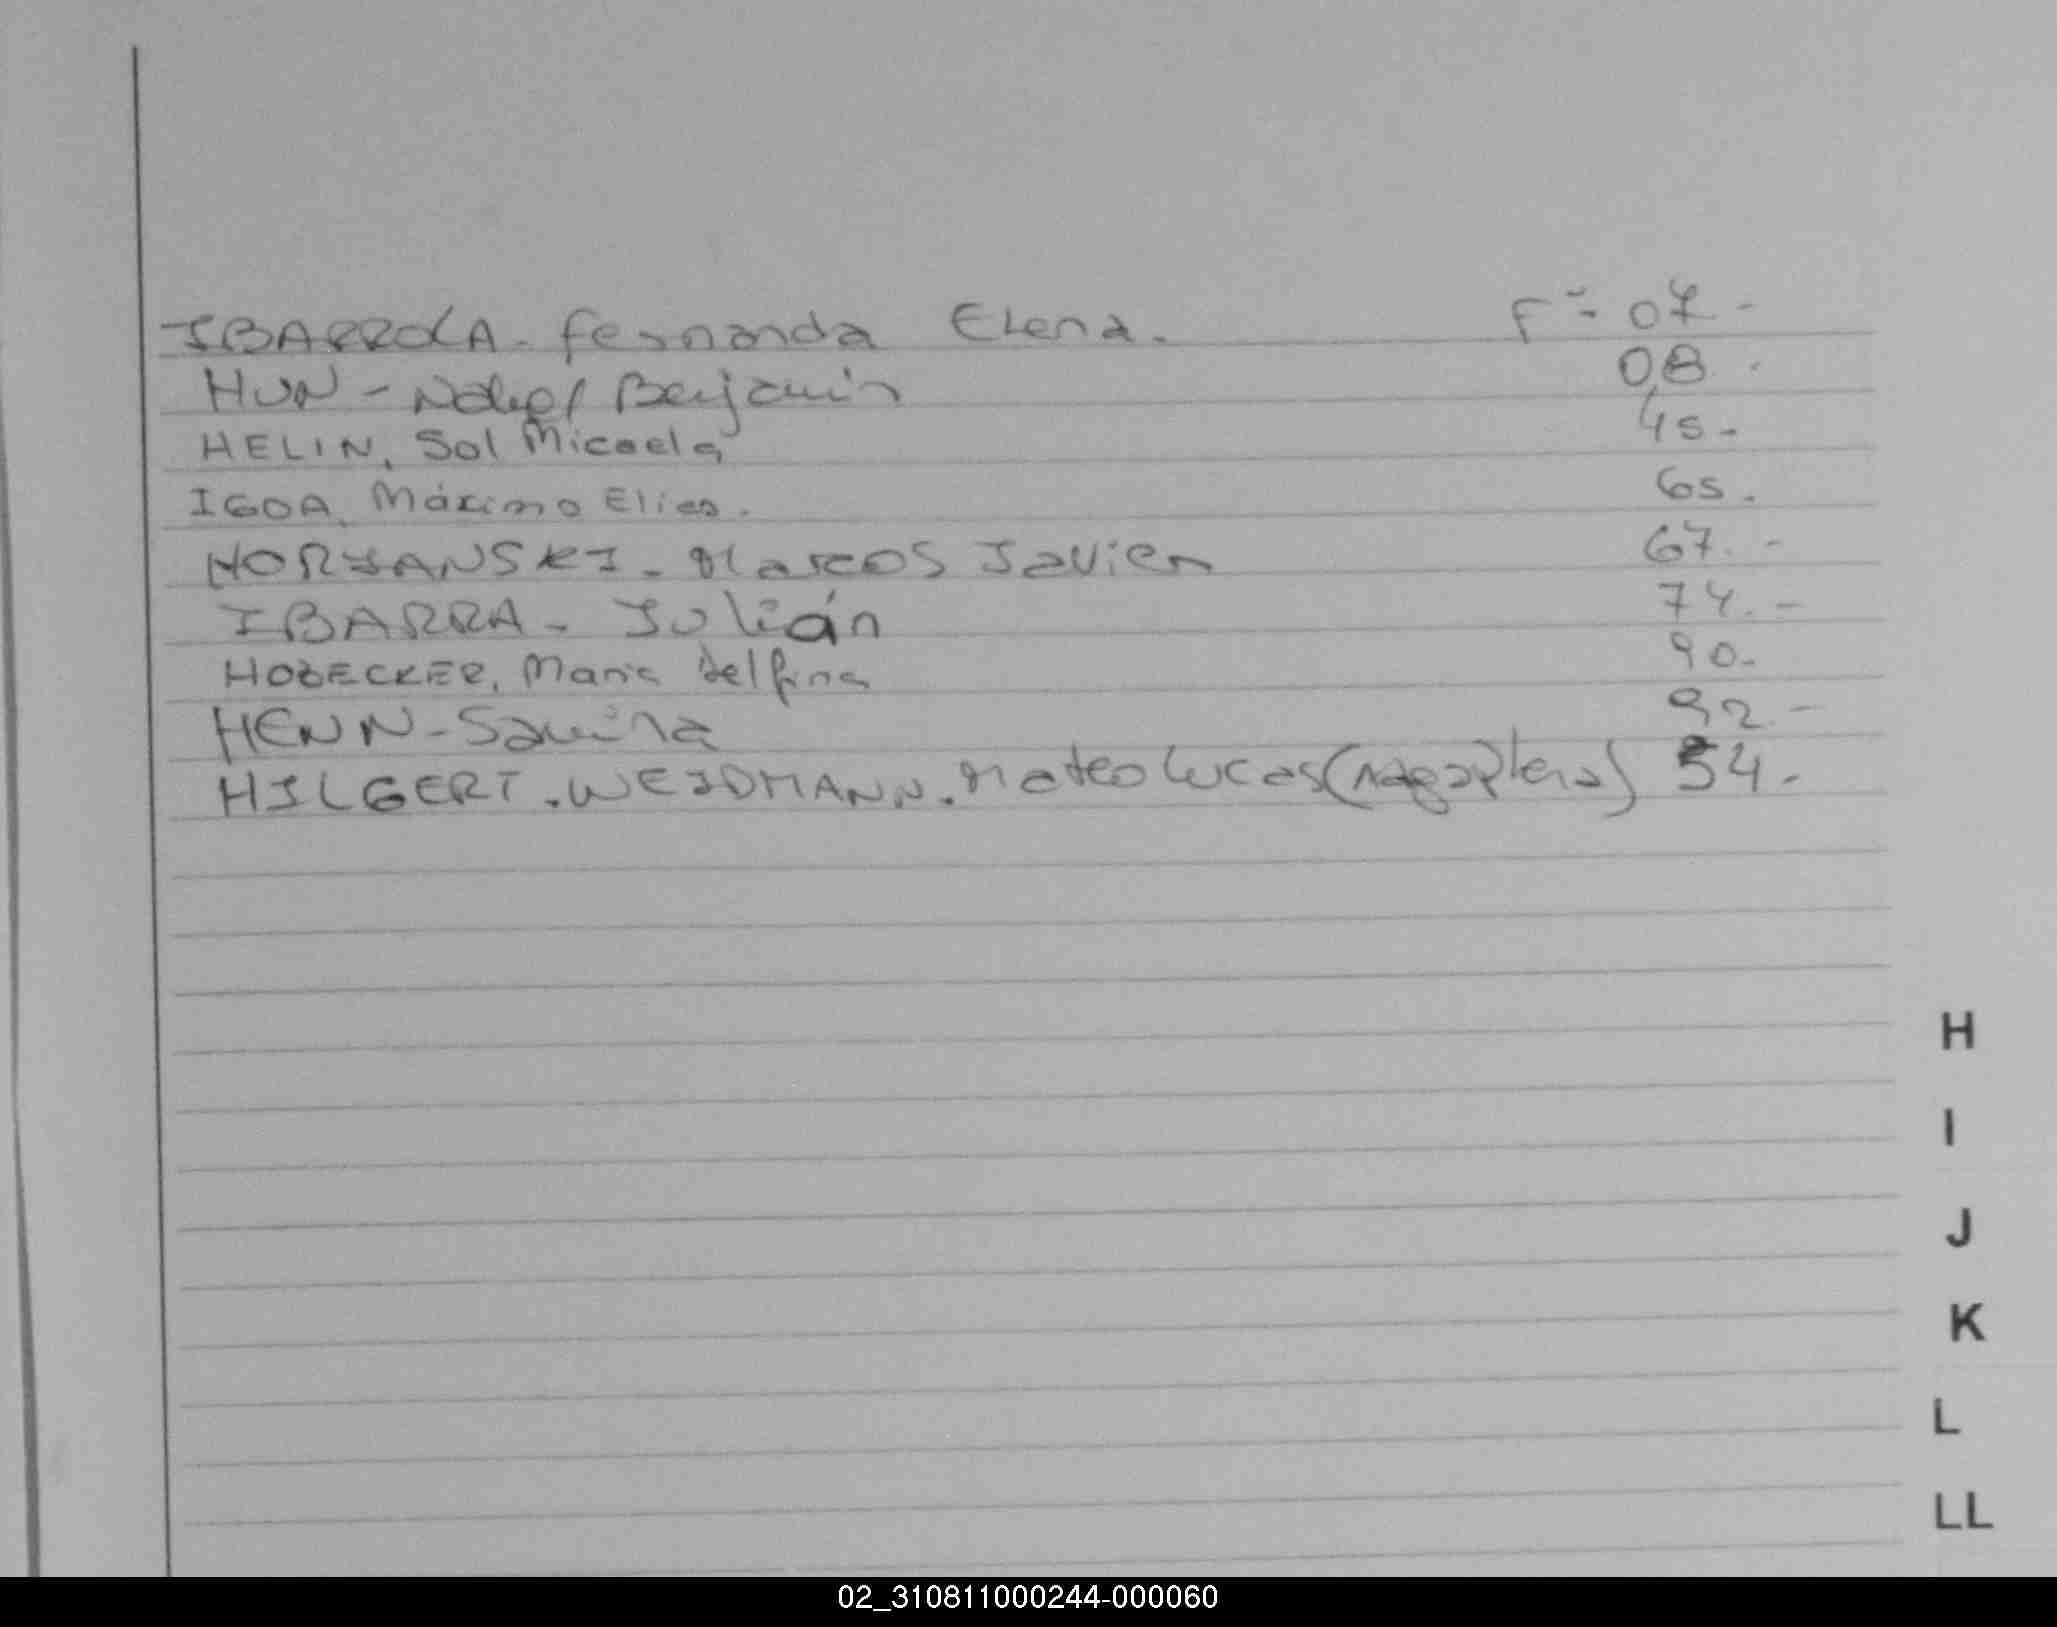 IBARROLA. Fernanda Elena. Fº= 07-
HUN - Nahuel Benjamin 08.
HELIN, Sol Micaela 45.-
IGOA, Máximo Elias. 65.
HORJANSKI. Marcos Javier 67.-
IBARRA - Julián 74.-
HOBECKER, Maria Delfina 90.-
HENN - Samira 92.-
HILGERT. WEIDMANN. Mateo Lucas 54.-
H
I
J
K
L
LL
02_310811000244-000060